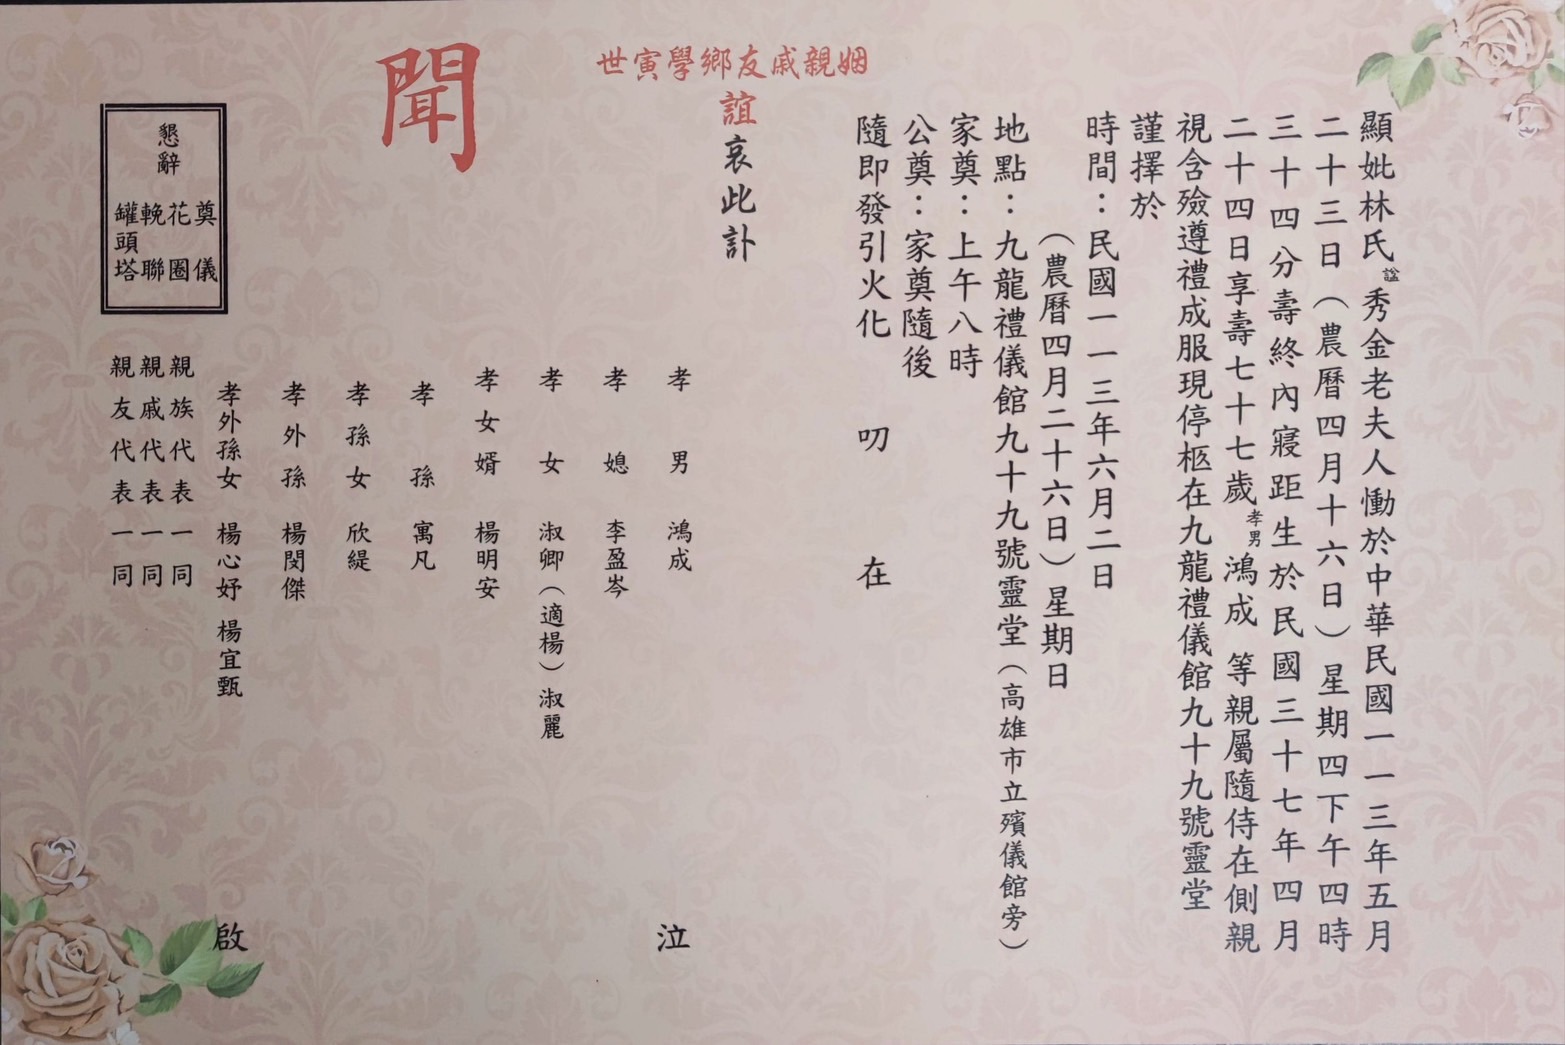 顯妣林氏諡秀金老夫人慟於中華民國一一三年五月
二十三日（農曆四月十六日）星期四下午四時
三十四分壽終內寢距生於民國三十七年四月
二十四日享壽七十七歲孝男鴻成 等親屬隨侍在側親
視含殮遵禮成服現停柩在九龍禮儀館九十九號靈堂
謹擇於
時間：民國一一三年六月二日
（農曆四月二十六日）星期日
地點：九龍禮儀館九十九號靈堂（高雄市立殯儀館旁）
家奠：上午八時
公奠：家奠隨後
隨即發引火化 叨 在
姻親戚友鄉學寅世
誼哀此訃
聞
孝男 鴻成 泣
孝媳 李盈岑
孝女 淑卿（適楊）淑麗
孝女婿 楊明安
孝孫 寓凡
孝孫女 欣緹
孝外孫 楊閔傑
孝外孫女 楊心妤 楊宜甄 啟
親族代表一同
親戚代表一同
親友代表一同
懇辭
奠儀
花圈
輓聯
罐頭塔